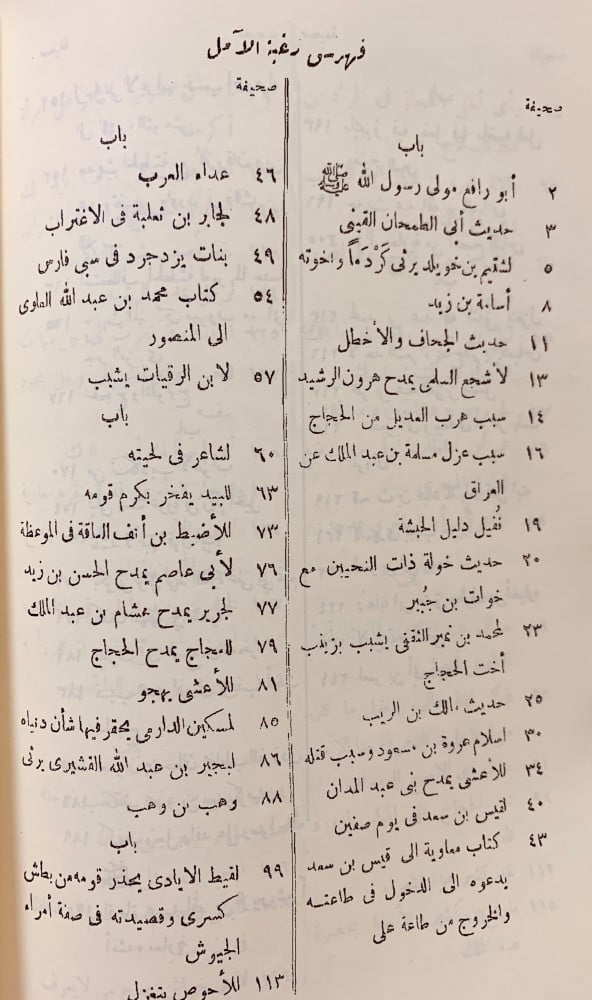 فهرس رغبة الآمل
صحيفة
باب
٢ أبو رافع مولى رسول الله ﷺ
٣ حديث أبى الطمحان القينى
٥ لشقيم بن خويلد يرثى كَرْدَماً واخوته
٨ أسامة بن زيد
١١ حديث الجحاف والأخطل
١٣ لأشجع السلمى يمدح هرون الرشيد
١٤ سبب هرب العديل من الحجاج
١٦ سبب عزل مسلمة بن عبد الملك عن
العراق
١٩ نُفيل دليل الحبشة
٢٠ حديث خولة ذات النحيين مع
خوات بن جُبير
٢٣ لمحمد بن نمير الثقفى يشبب بزينب
أخت الحجاج
٢٥ حديث مالك بن الريب
٣٠ اسلام عروة بن مسعود وسبب قتله
٣٤ للأعشى يمدح بنى عبد المدان
٤٠ لقيس بن سعد فى يوم صفين
٤٣ كتاب معاوية الى قيس بن سعد
يدعوه الى الدخول فى طاعته
والخروج من طاعة على
صحيفة
باب
٤٦ عداء العرب
٤٨ لجابر بن ثعلبة فى الاغتراب
٤٩ بنات يزدجرد فى سبى فارس
٥٤ كتاب محمد بن عبد الله العلوى
الى المنصور
٥٧ لابن الرقيات يشبب
باب
٦٠ لشاعر فى لحيته
٦٣ للبيد يفخر بكرم قومه
٧٣ للأضبط بن أنف الناقة فى الموعظة
٧٦ لأبى عاصم يمدح الحسن بن زيد
٧٧ لجرير يمدح هشام بن عبد الملك
٧٩ للعجاج يمدح الحجاج
٨١ للأعشى يهجو
٨٥ لمسكين الدارمى يحقر فيها شأن دنياه
٨٦ لبجير بن عبد الله القشيرى يرثى
٨٨ وهب بن وهب
باب
٩٩ لقيط الايادى يحذر قومه من بطاش
كسرى وقصيدته فى صفة أمراء
الجيوش
١١٣ للأحوص يتغزل